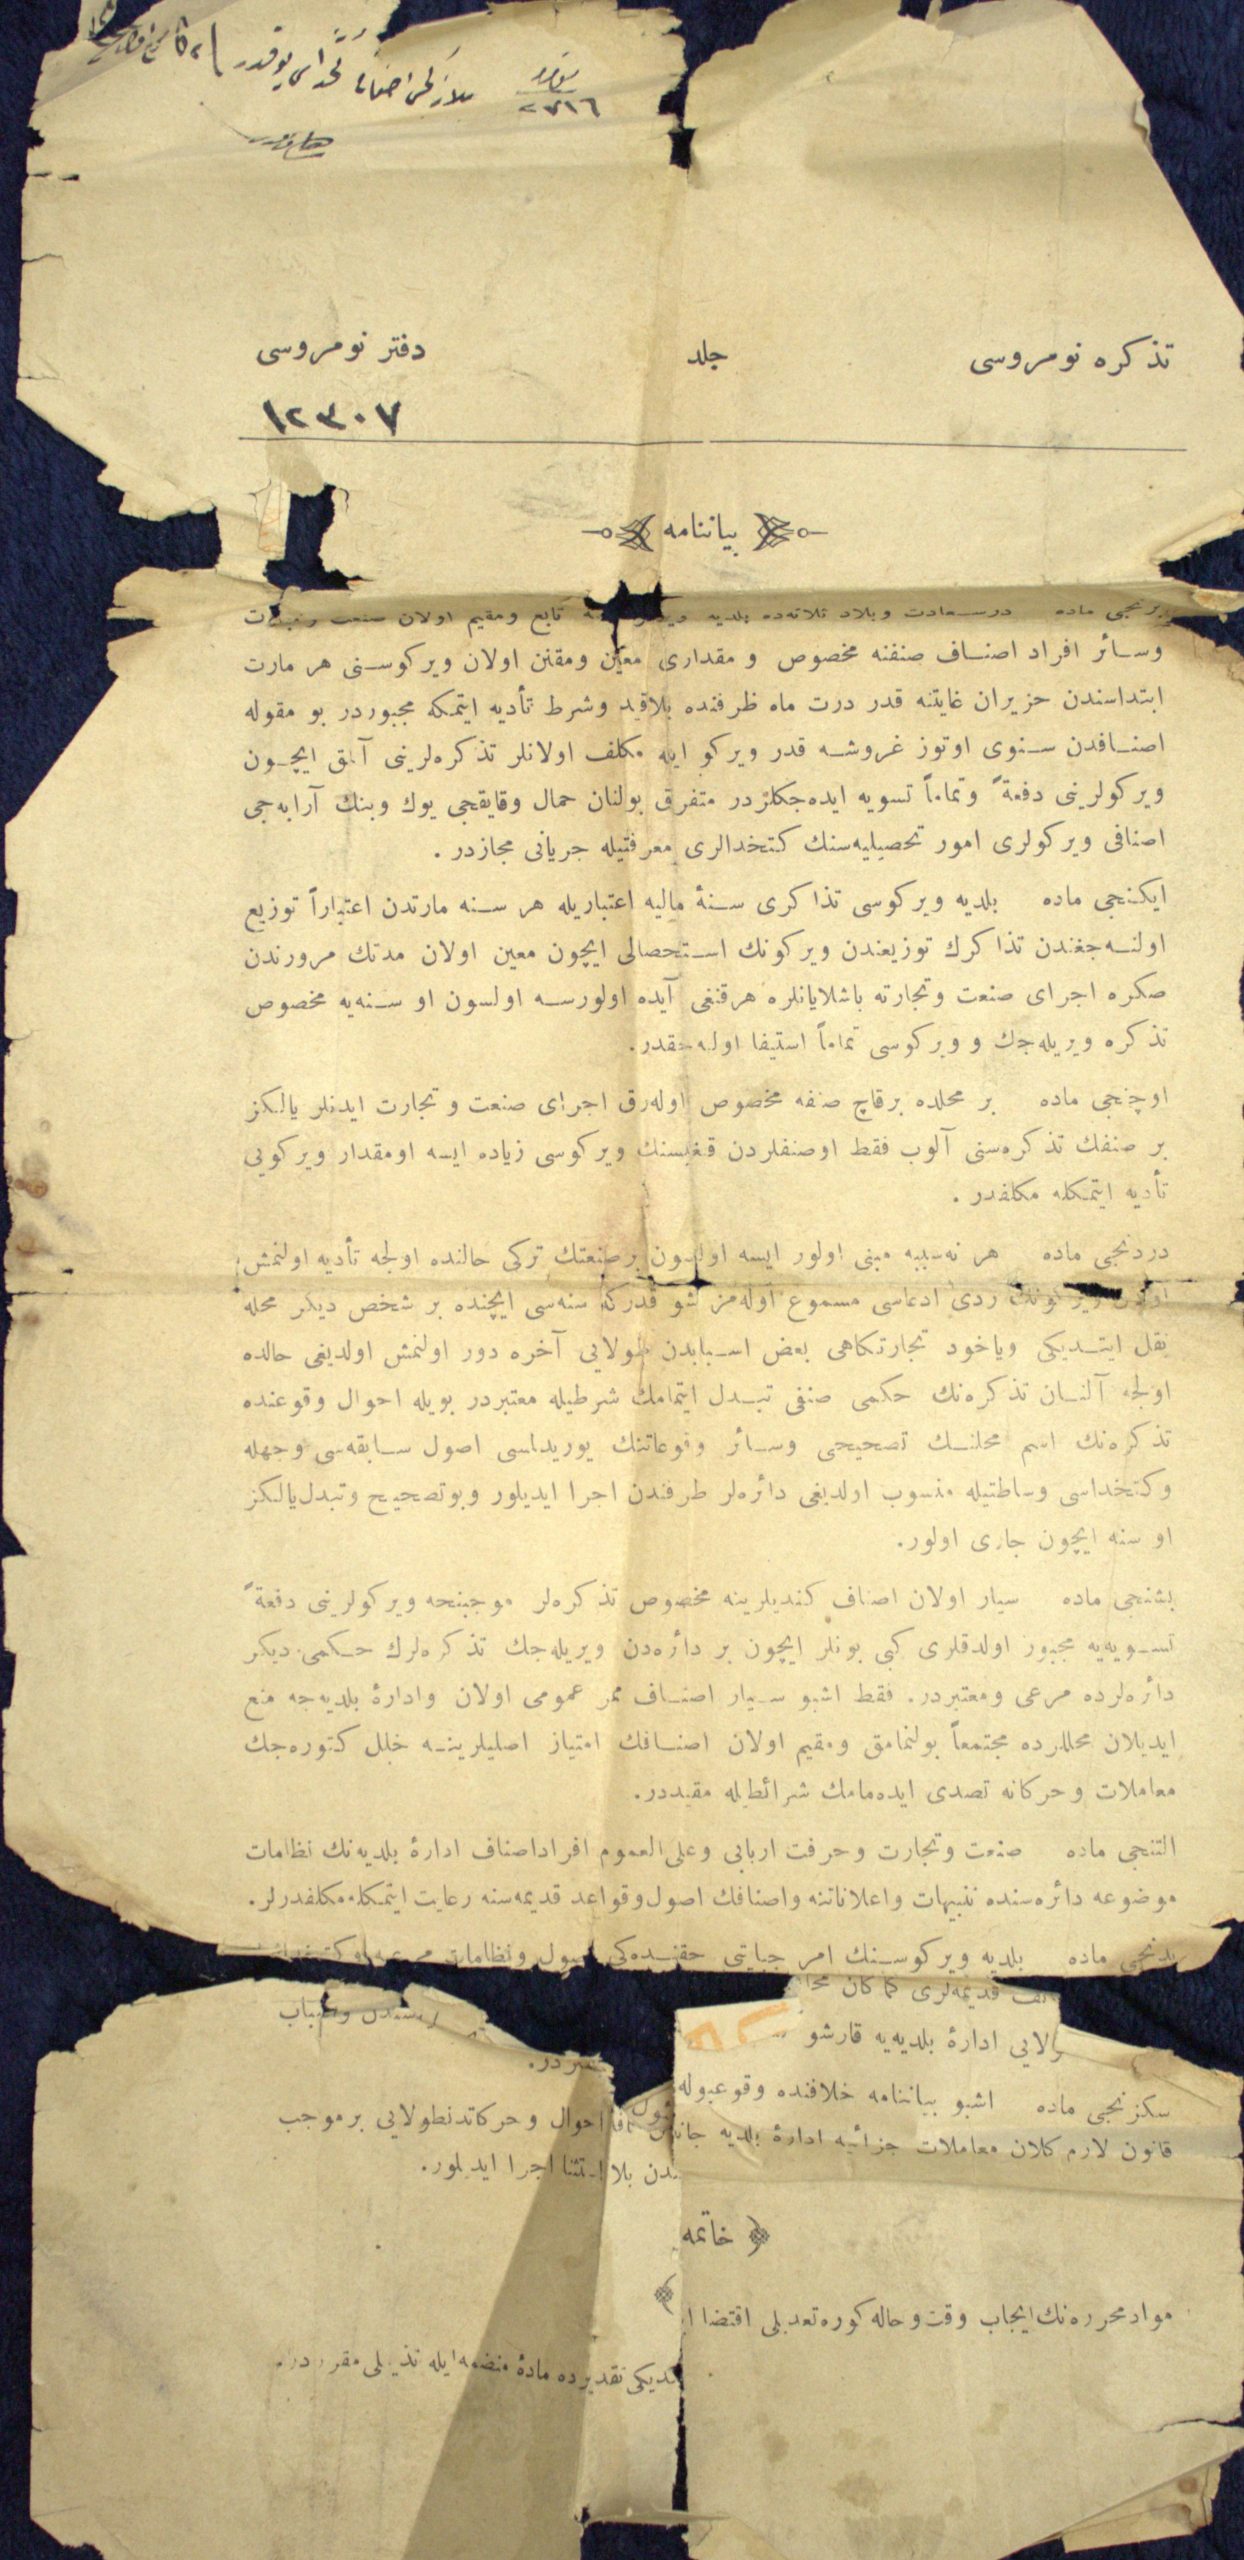 تذكره نومروسی جلد دفتر نومروسی
١٢٣٠٧
بياننامه
برنجی ماده درسعادت وبلاد ثلاثه‌ده بلديه تابع ومقيم اولان صنعت
وسائر افراد اصناف صنفنه مخصوص و مقداری معين ومقنن اولان ويركوسنی هر مارت
ابتداسندن حزيران غايتنه قدر درت ماه ظرفنده بلاقيد وشرط تأديه ايتمكه مجبوردر بو مقوله
اصنافدن سنوی اوتوز غروشه قدر ويركو ايله مكلف اولانلر تذكره‌لرينی آلمق ايچون
ويركولرينی دفعةً وتماماً تسويه ايده‌جكلردر متفرق بولنان حمال وقايقجی يوك وبنك آرابه‌جی
اصنافی ويركولری امور تحصيليه‌سنك كتخدالری معرفتيله جريانی مجازدر .
ايكنجی ماده بلديه ويركوسی تذاكری سنهٔ ماليه اعتباريله هر سنه مارتدن اعتباراً توزيع
اولنه‌جغندن تذاكرك توزيعندن ويركونك استحصالی ايچون معين اولان مدتك مرورندن
صكره اجرای صنعت وتجارته باشلايانلره هرقنغی آيده اولورسه اولسون او سنه‌يه مخصوص
تذكره ويريله‌جك و ويركوسی تماماً استيفا اوله‌جقدر.
اوچنجی ماده بر محلده برقاچ صنفه مخصوص اوله‌رق اجرای صنعت و تجارت ايدنلر يالكز
بر صنفك تذكره‌سنی آلوب فقط اوصنفلردن قنغيسنك ويركوسی زياده ايسه اومقدار ويركويی
تأديه ايتمكله مكلفدر .
دردنجی ماده هر نه‌سببه مبنی اولور ايسه اولسون برصنعتك تركی حالنده اولجه تأديه اولنمش
اولان ويركونك ردی ادعاسی مسموع اوله‌مز شو قدركه سنه‌سی ايچنده بر شخص ديكر محله
نقل ايتديكی وياخود تجارتكاهی بعض اسبابدن طولايی آخره دور اولنمش اولديغی حالده
اولجه آلنان تذكره‌نك حكمی صنفی تبدل ايتمامك شرطيله معتبردر بويله احوال وقوعنده
تذكره‌نك اسم محلنك تصحيحی وسائر وقوعاتنك يوريداسی اصول سابقه‌سی وجهله
وكتخداسی وساطتيله منسوب اولديغی دائره‌لر طرفندن اجرا ايديلور وبوتصحيح وتبدل يالكز
او سنه ايچون جاری اولور.
بشنجی ماده سيار اولان اصناف كنديلرينه مخصوص تذكره‌لر موجبنجه ويركولرينی دفعةً
تسويه‌يه مجبور اولدقلری كبی بونلر ايچون بر دائره‌دن ويريله‌جك تذكره‌لرك حكمی ديكر
دائره‌لرده مرعی ومعتبردر. فقط اشبو سيار اصناف ممر عمومی اولان وادارهٔ بلديه‌جه منع
ايديلان محللرده مجتمعاً بولنمامق ومقيم اولان اصنافك امتياز اصليلرينه خلل كتوره‌جك
معاملات وحركاته تصدی ايده‌مامك شرائطيله مقيددر.
التنجی ماده صنعت وتجارت وحرفت اربابی وعلی‌العموم افراداصناف ادارهٔ بلديه‌نك نظامات
موضوعه دائره‌سنده تنبيهات واعلاناتنه واصنافك اصول وقواعد قديمه‌سنه رعايت ايتمكله مكلفدرلر.
يدنجی ماده بلديه ويركوسنك امر جبايتی حقنده‌كی اصول ونظامات
قديمه‌لری كما كان
ادارهٔ بلديه‌يه قارشو
سكزنجی ماده اشبو بياننامه خلافنده وقوعبوله احوال وحركاتدنطولايی برموجب
قانون لازم كلان معاملات جزائيه ادارهٔ بلديه بلا استثنا اجرا ايديلور.
خاتمه
موادمحرره‌نك ايجاب وقت وحاله كوره‌تعديلی اقتضا ايتديكی تقديرده مادهٔ منضمه ايله تذييلی مقرردر.